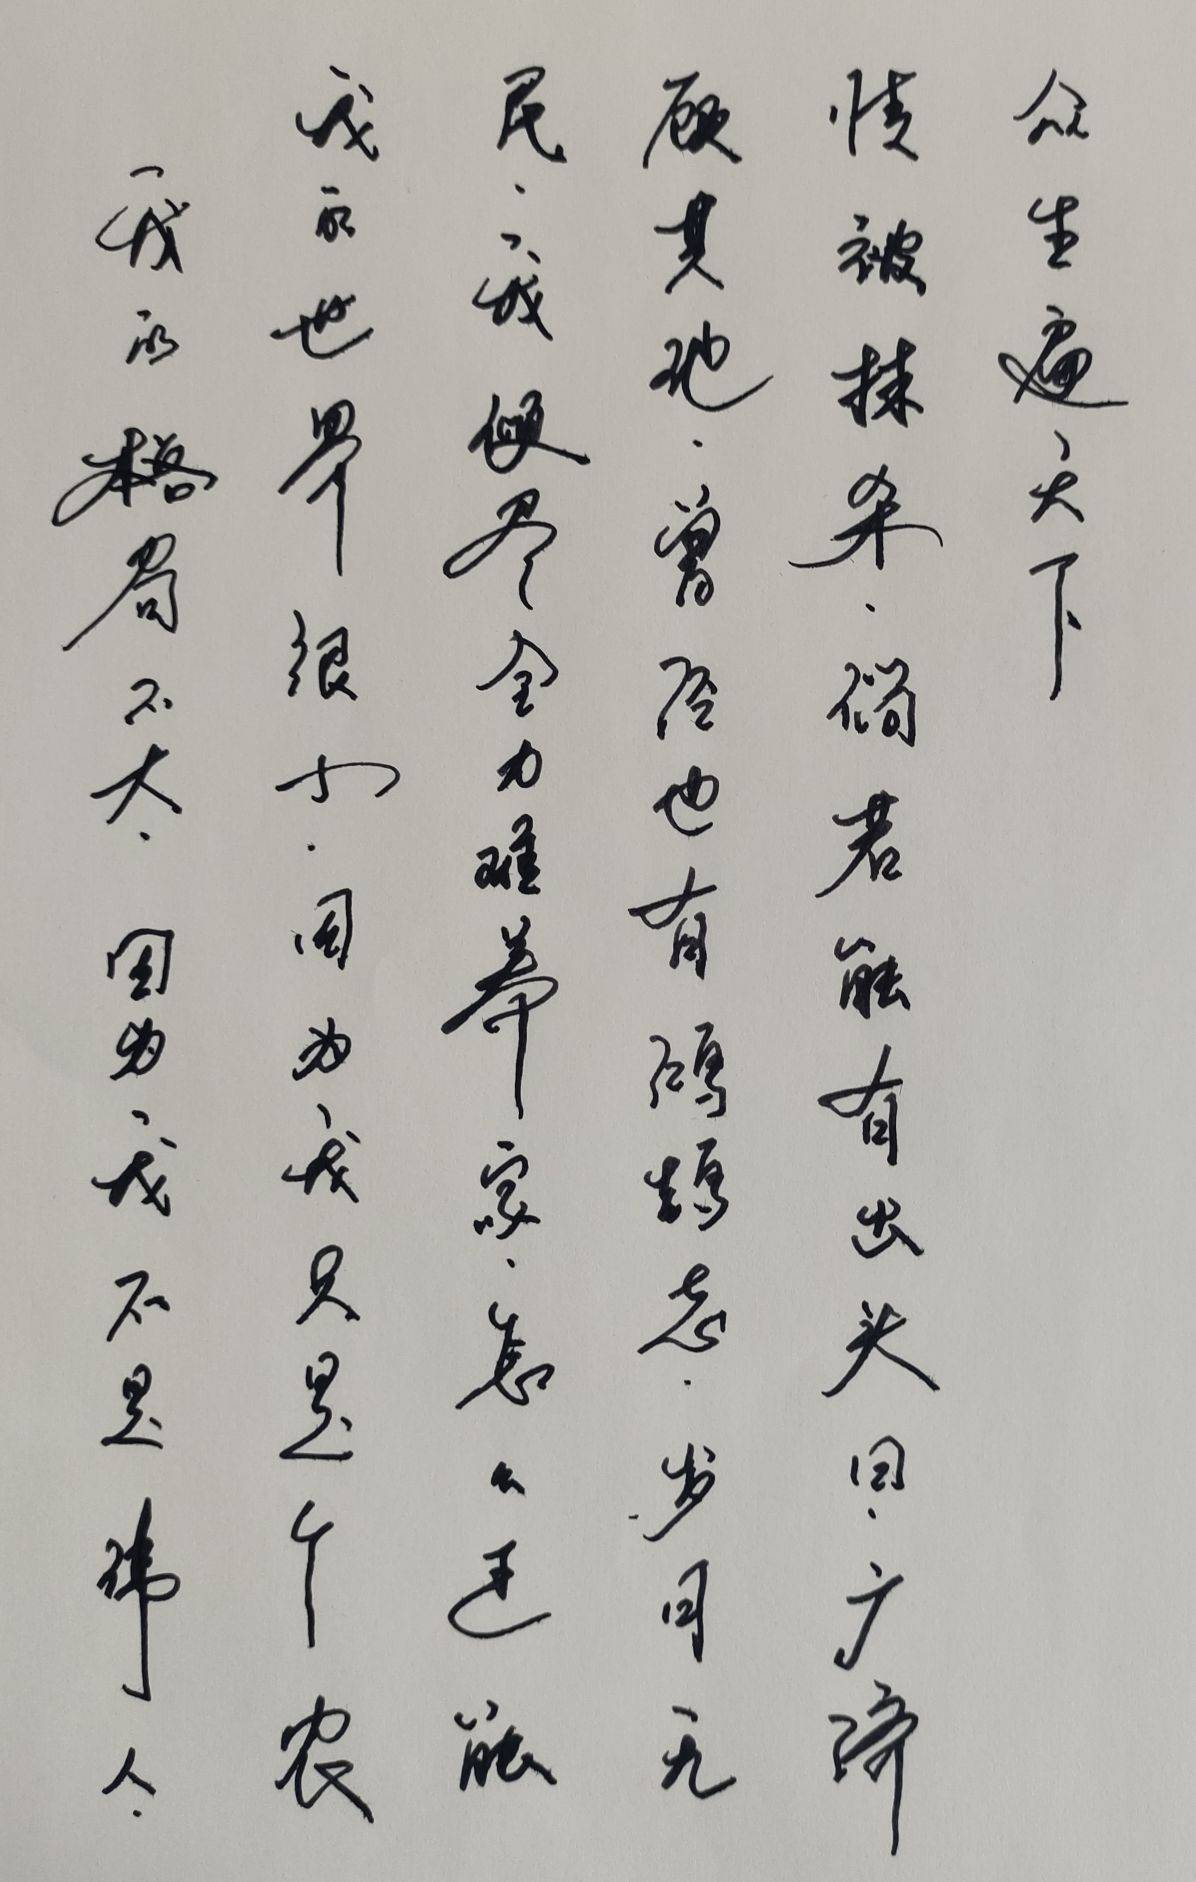 我的格局不大.因为我不是伟人.
我的世界很小.因为我只是个农
民.我使尽全力难养家.怎么还能
顾其他.曾经也有鸿鹄志.岁月无
情被抹杀.倘若能有出头日.广济
众生遍天下